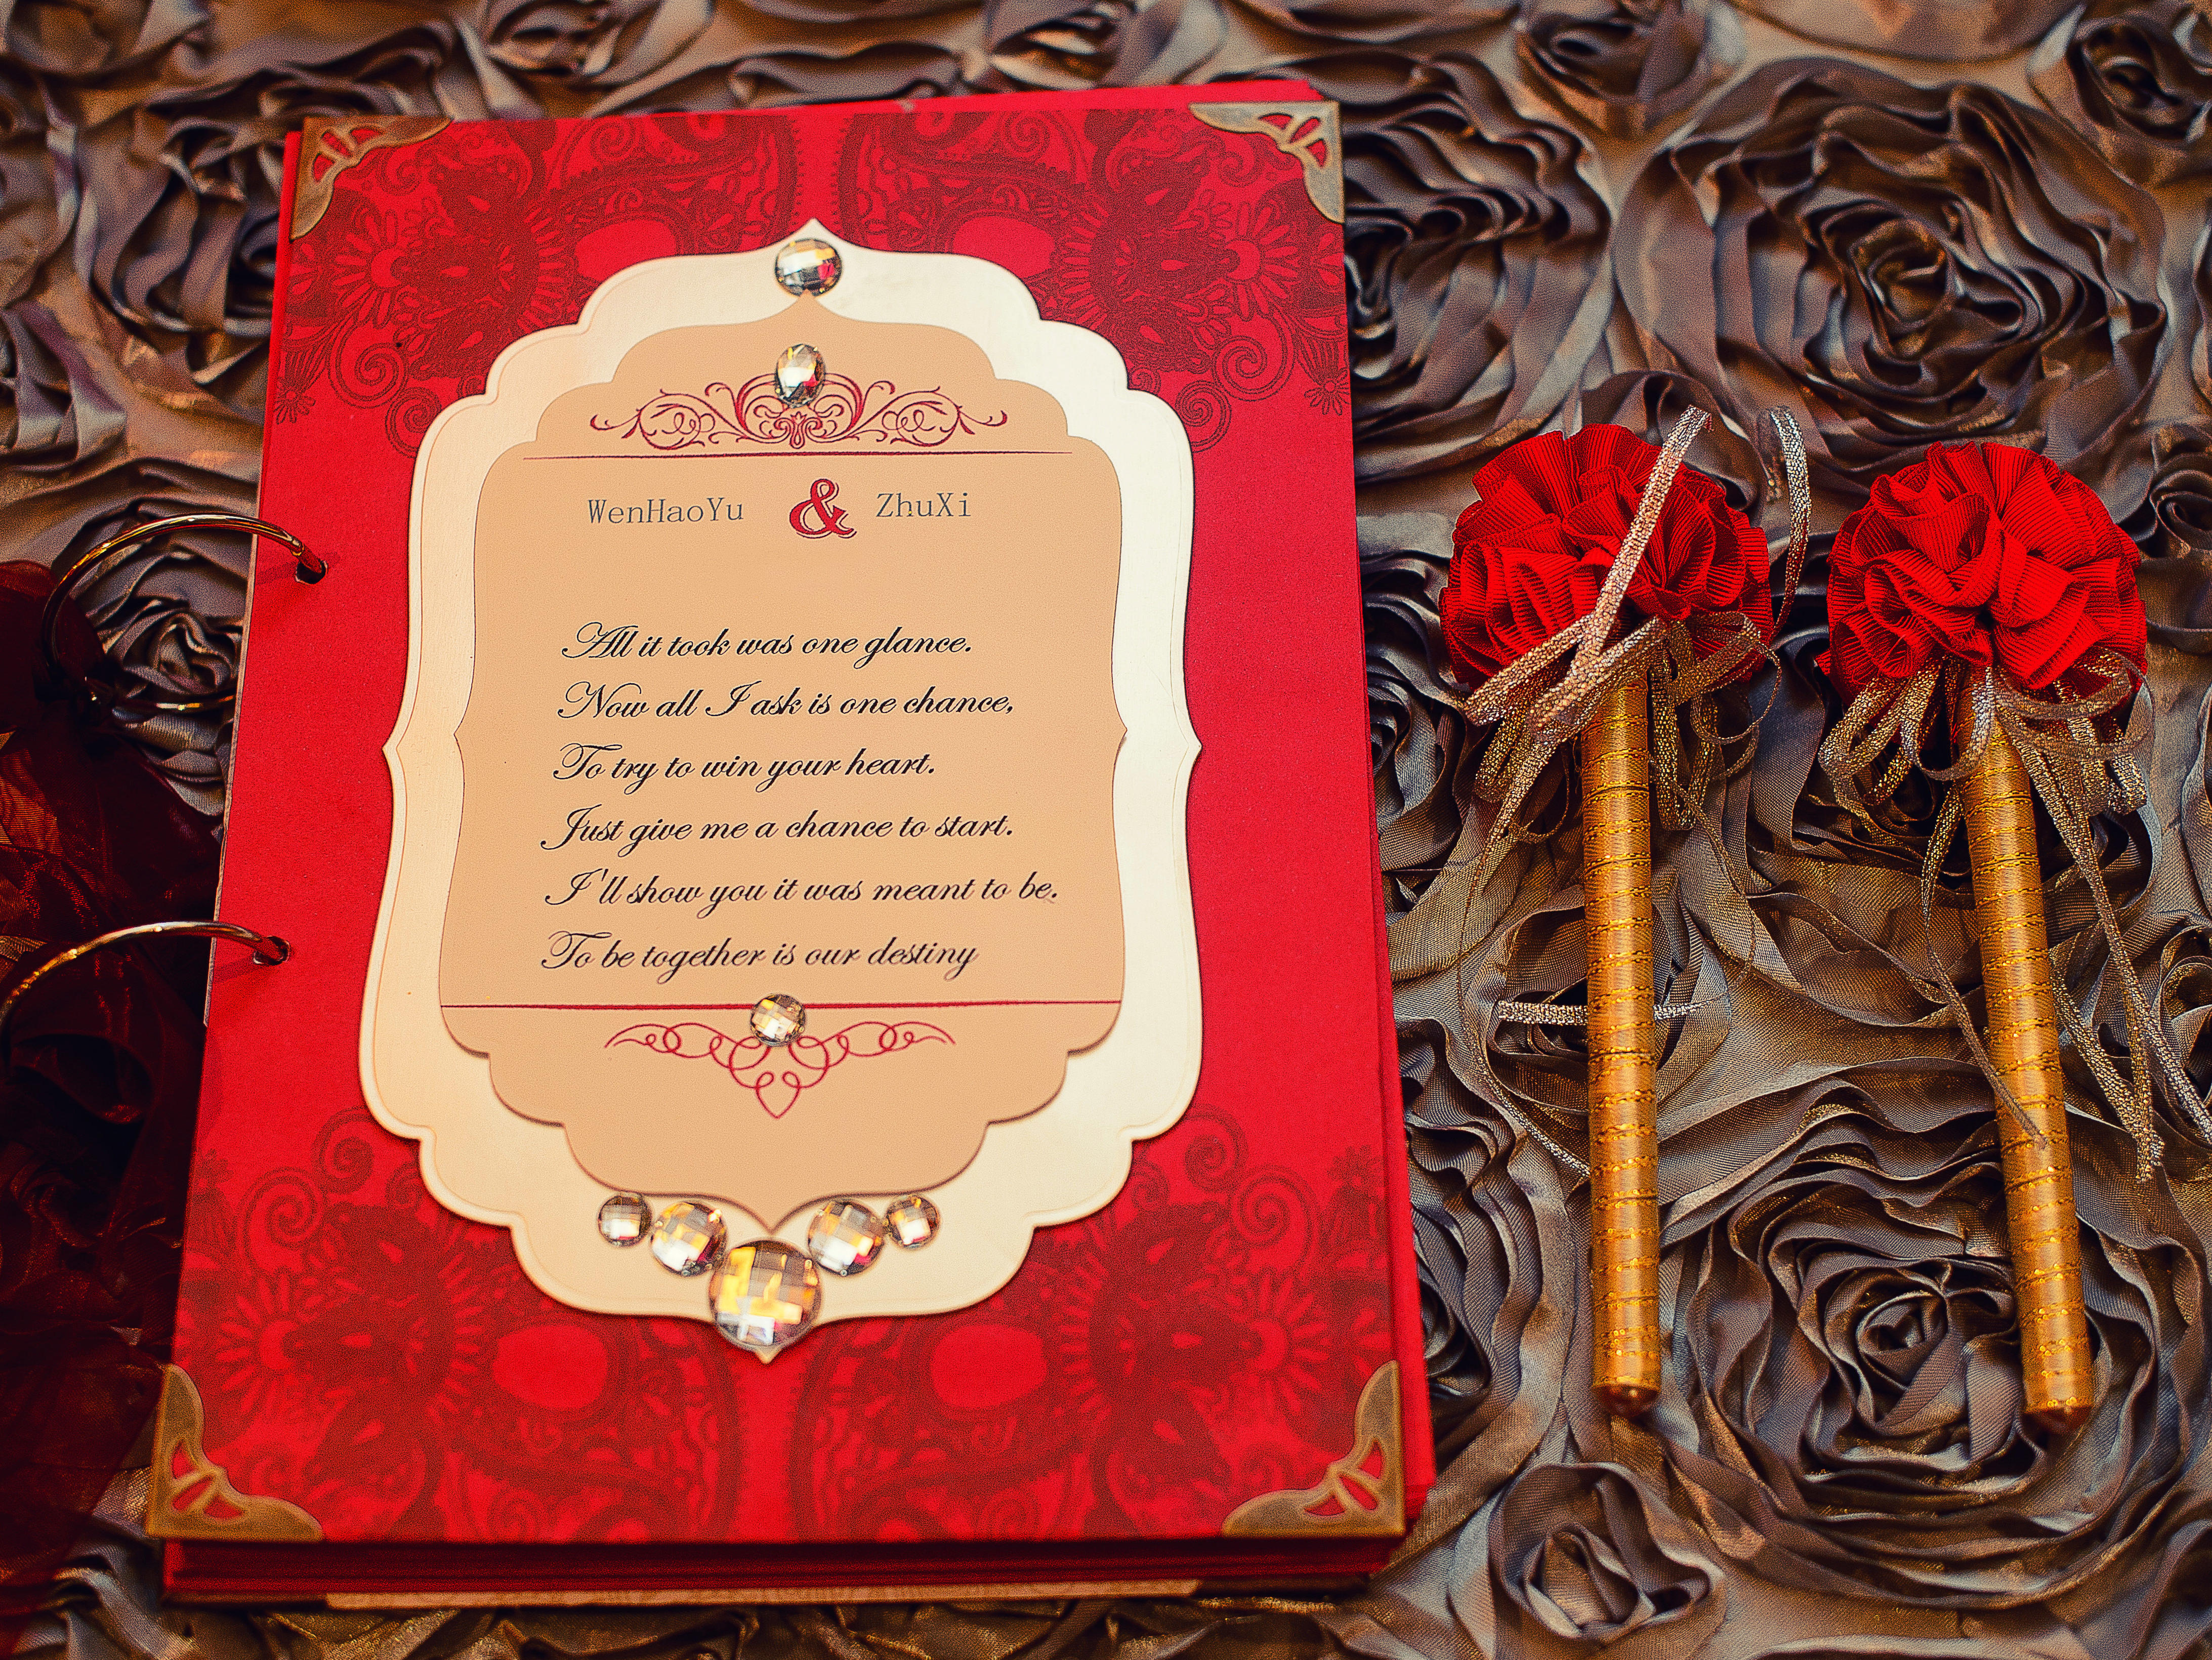 WenHaoYu & ZhuXi
All it took was one glance.
Now all I ask is one chance,
To try to win your heart.
Just give me a chance to start.
I'll show you it was meant to be.
To be together is our destiny